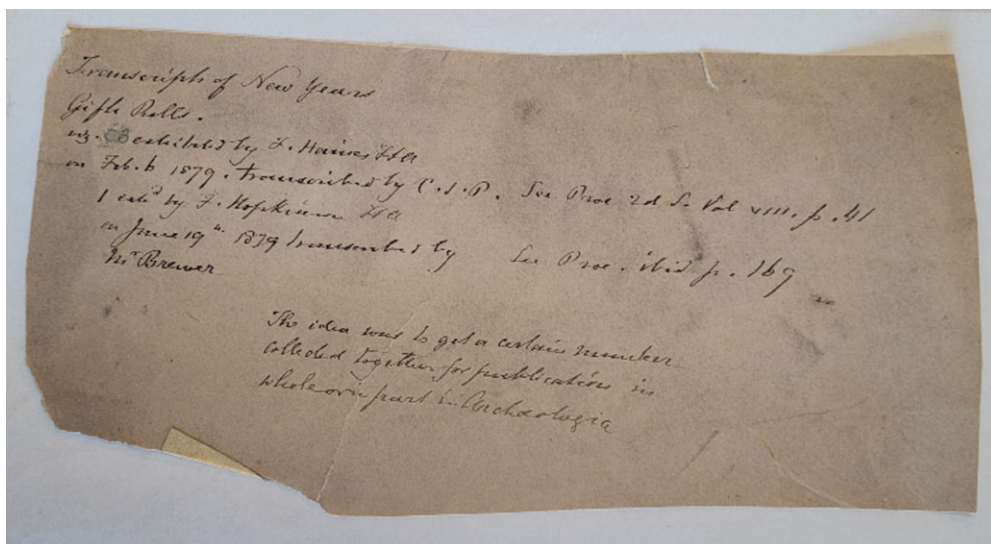 Transcripts of New Years
Gifts Rolls.
viz. exhibited by F. Haines FSA
on Feb. 6 1879. transcribed by C.S.P. See Proc 2d S. Vol viii. p. 41
1 exd by F. Hopkinson FSA
on June 19th 1879 transcribed by See Proc. ibid p. 169
Mr Brewer
The idea was to get a certain number
collected together for publication in
whole or in part in Archæologia